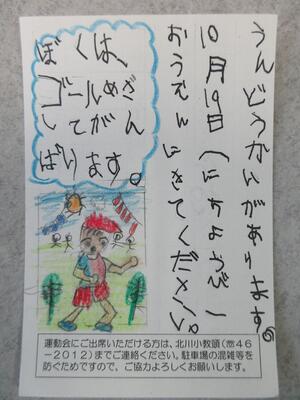 うんどうかいがあります。
10月19日(にちようび)
おうえんにきてください。
ぼくは、
ゴールめざ
してがん
ばります。
運動会にご出席いただける方は、北川小教頭(☎46
-2012)までご連絡ください。駐車場の混雑等を
防ぐためですので、ご協力よろしくお願いします。